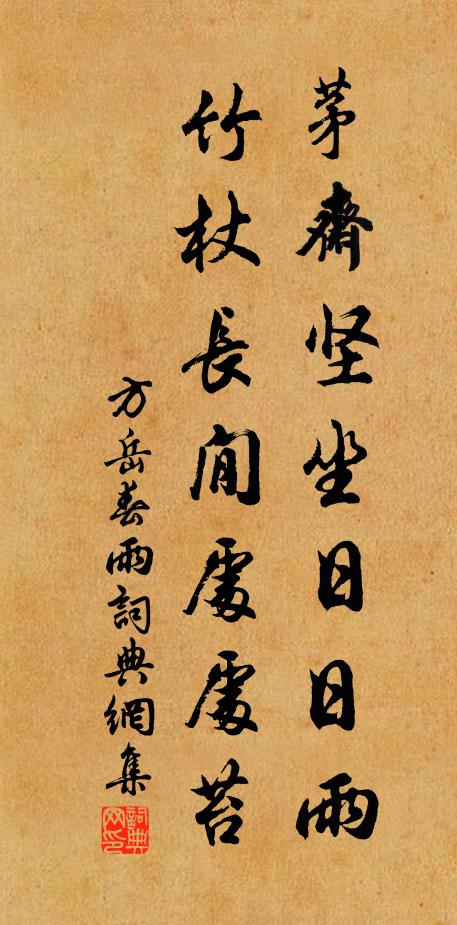 茅齋坚坐日日雨
竹杖長閒處處苔
方岳春雨詞典網集
詞典网印